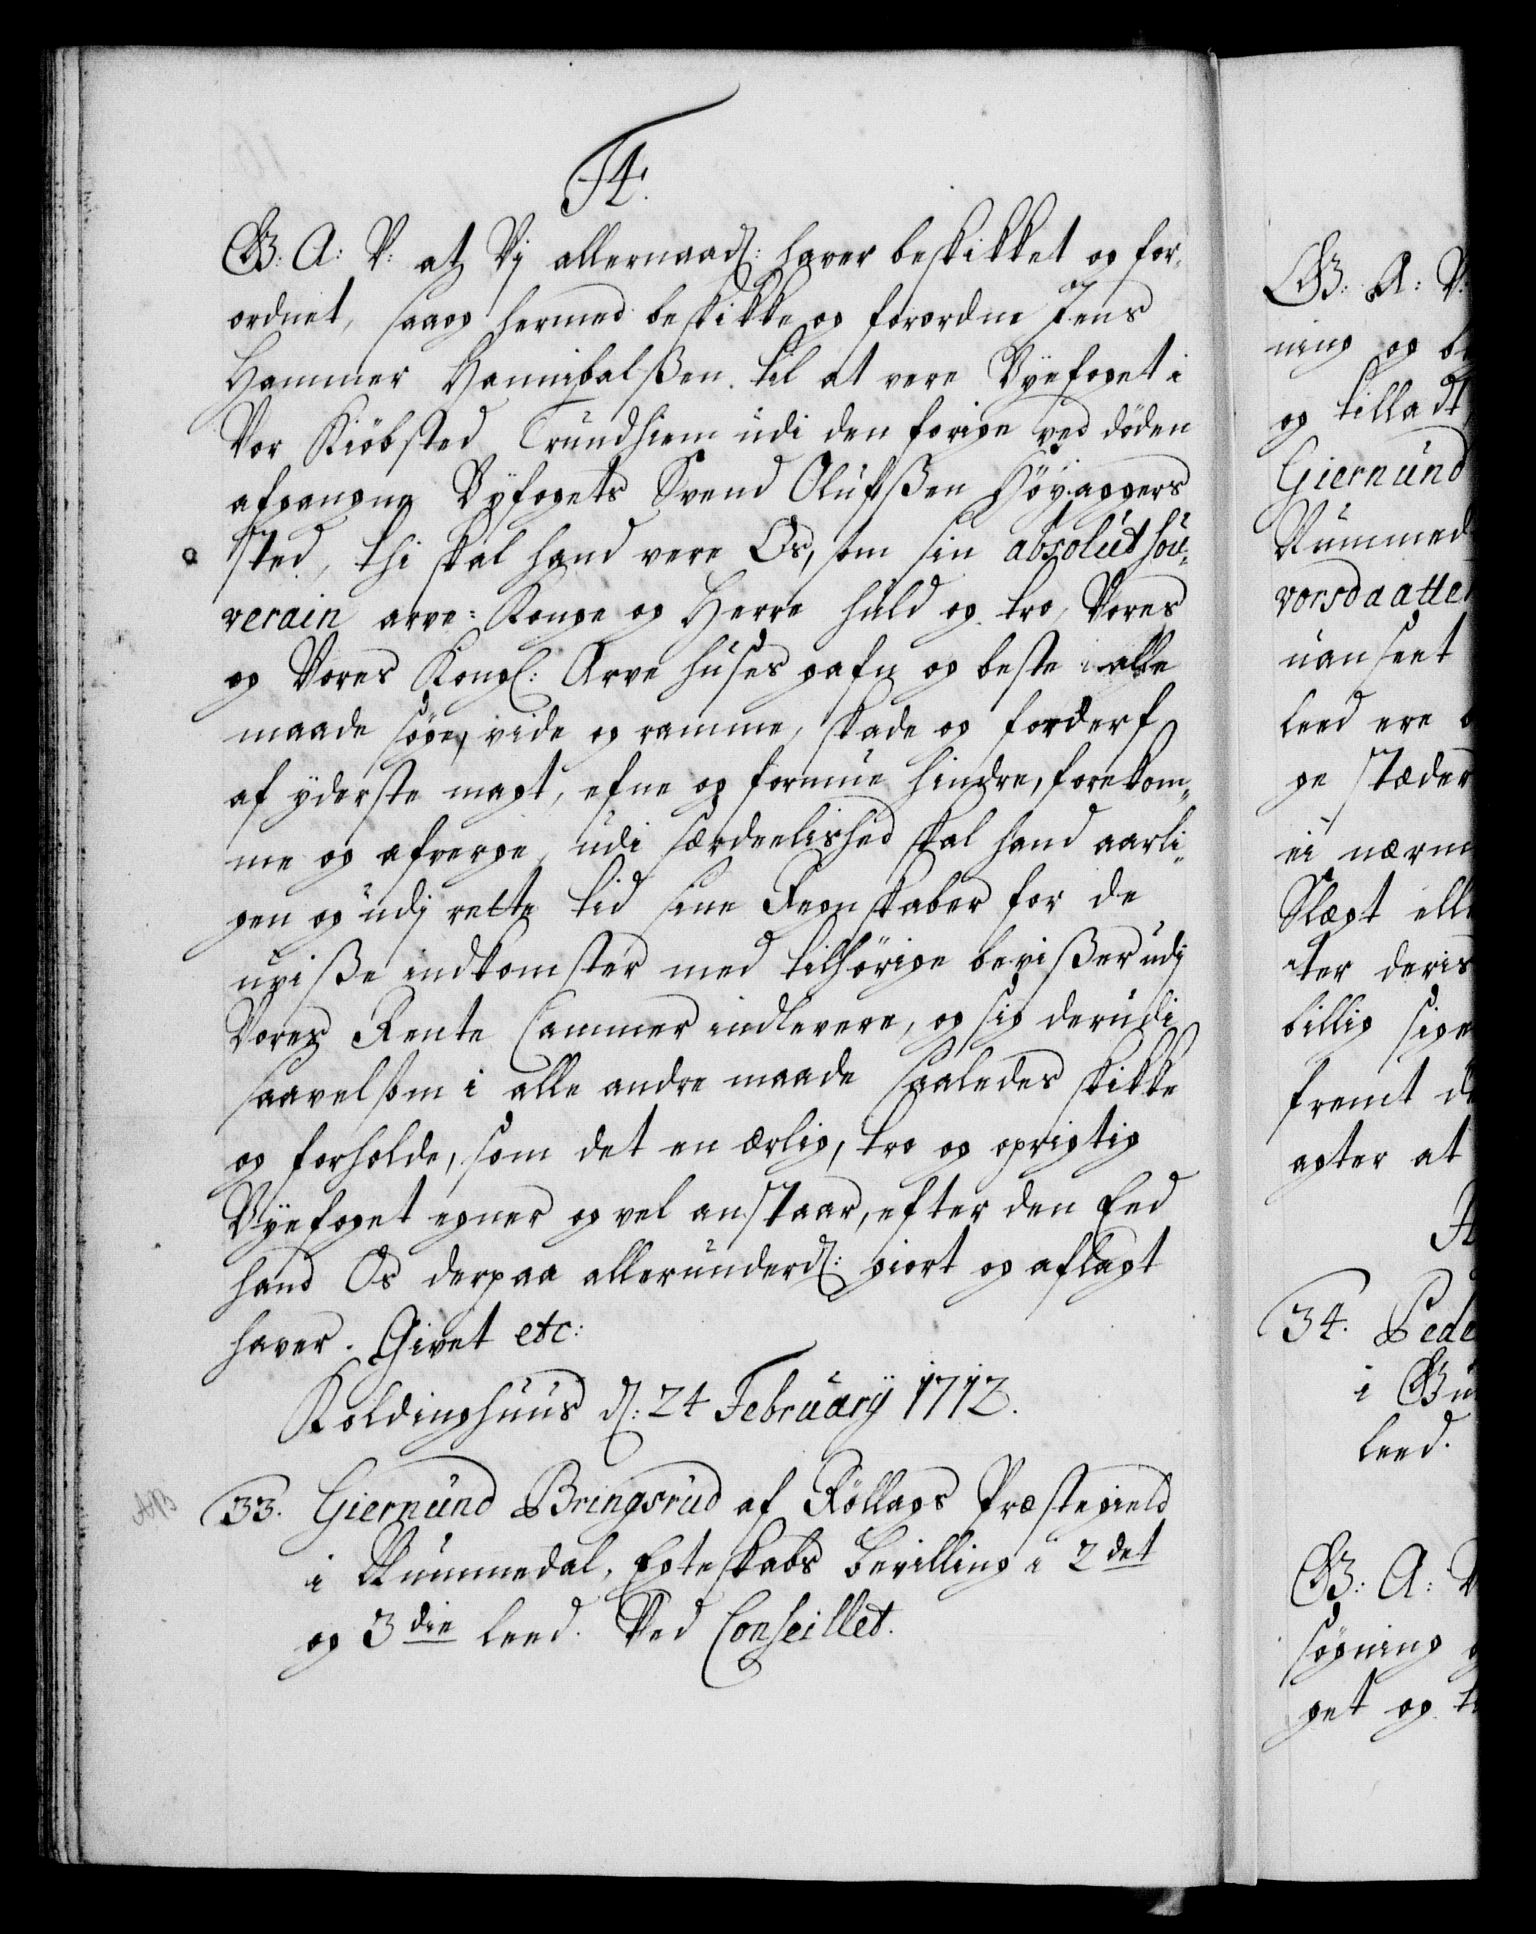 F4.
G: A: V: at Vj allernaad: haver beskikket og for-
ordnet, saaog hermed beskikke og forordne Jens
Hammer Hannibalsßen til at vere Byefoget i
Vor Kiöbsted Trundhiem udi den forige ved döden
afgangne Byfogets Svend Olufsßen Höyaggers
sted, thi skal hand vere Os, som sin absolut sou-
verain arve-Konge og Herre huld og tro, Vores
og Vores Kongl: Arve huses gafn og beste i alle
maade söge, vide og ramme, skade og forderf
af yderste magt, efne og formue hindre, forekom-
me og afverge, udi særdeelished skal hand aarli-
gen og udj rette tid sine Regnskaber for de
uviße indkomster med tilhörige bevißer udj
Vores Rente Cammer indlevere, og sig derudi
saavelsom i alle andre maade saaledes skikke
og forholde, som det en ærlig, tro og oprigtig
Byefoget egner og vel anstaar, efter den Eed
hand Os derpaa allerunderd: giort og aflagt
haver. Givet etc:
Koldinghuus d: 24 Februarij 1712.
33. Giernund Bringsrud af Rollags Præstegield
i Nummedal, Egteskabs bevilling i 2det
og 3die leed. Ved Conseillet.
G: A: V:
ning og be
og tilladt
Giernund
Nummed
vorsdaatte
uanseet
leed ere
ge stæder
ei nærm
Slægt elle
ter deris
billig sige
fremt de
agter at
34. Pede
i Gu
leed.
G: A: V
søgning
get og t